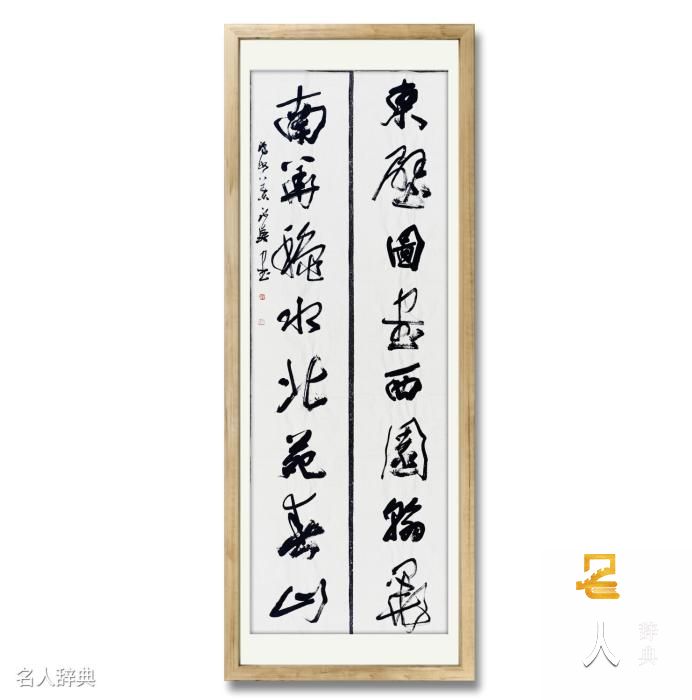 東壁圖書西園翰墨
南華穐水北苑春山
名人辞典
人
辞典